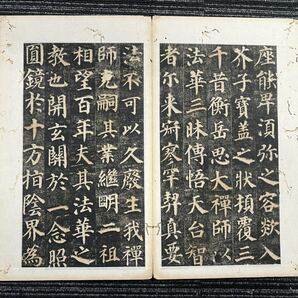 座能卑須弥之容欻入
芥子寶盖之狀頓覆三
千昔衡岳思大禪師以
法華三昧傳悟天台智
者尔来寂寥罕契真要
法不可以久廢生我禪
師克嗣其業継明二祖
相望百年夫其法華之
教也開玄關於一念照
圓鏡於十方指陰界為